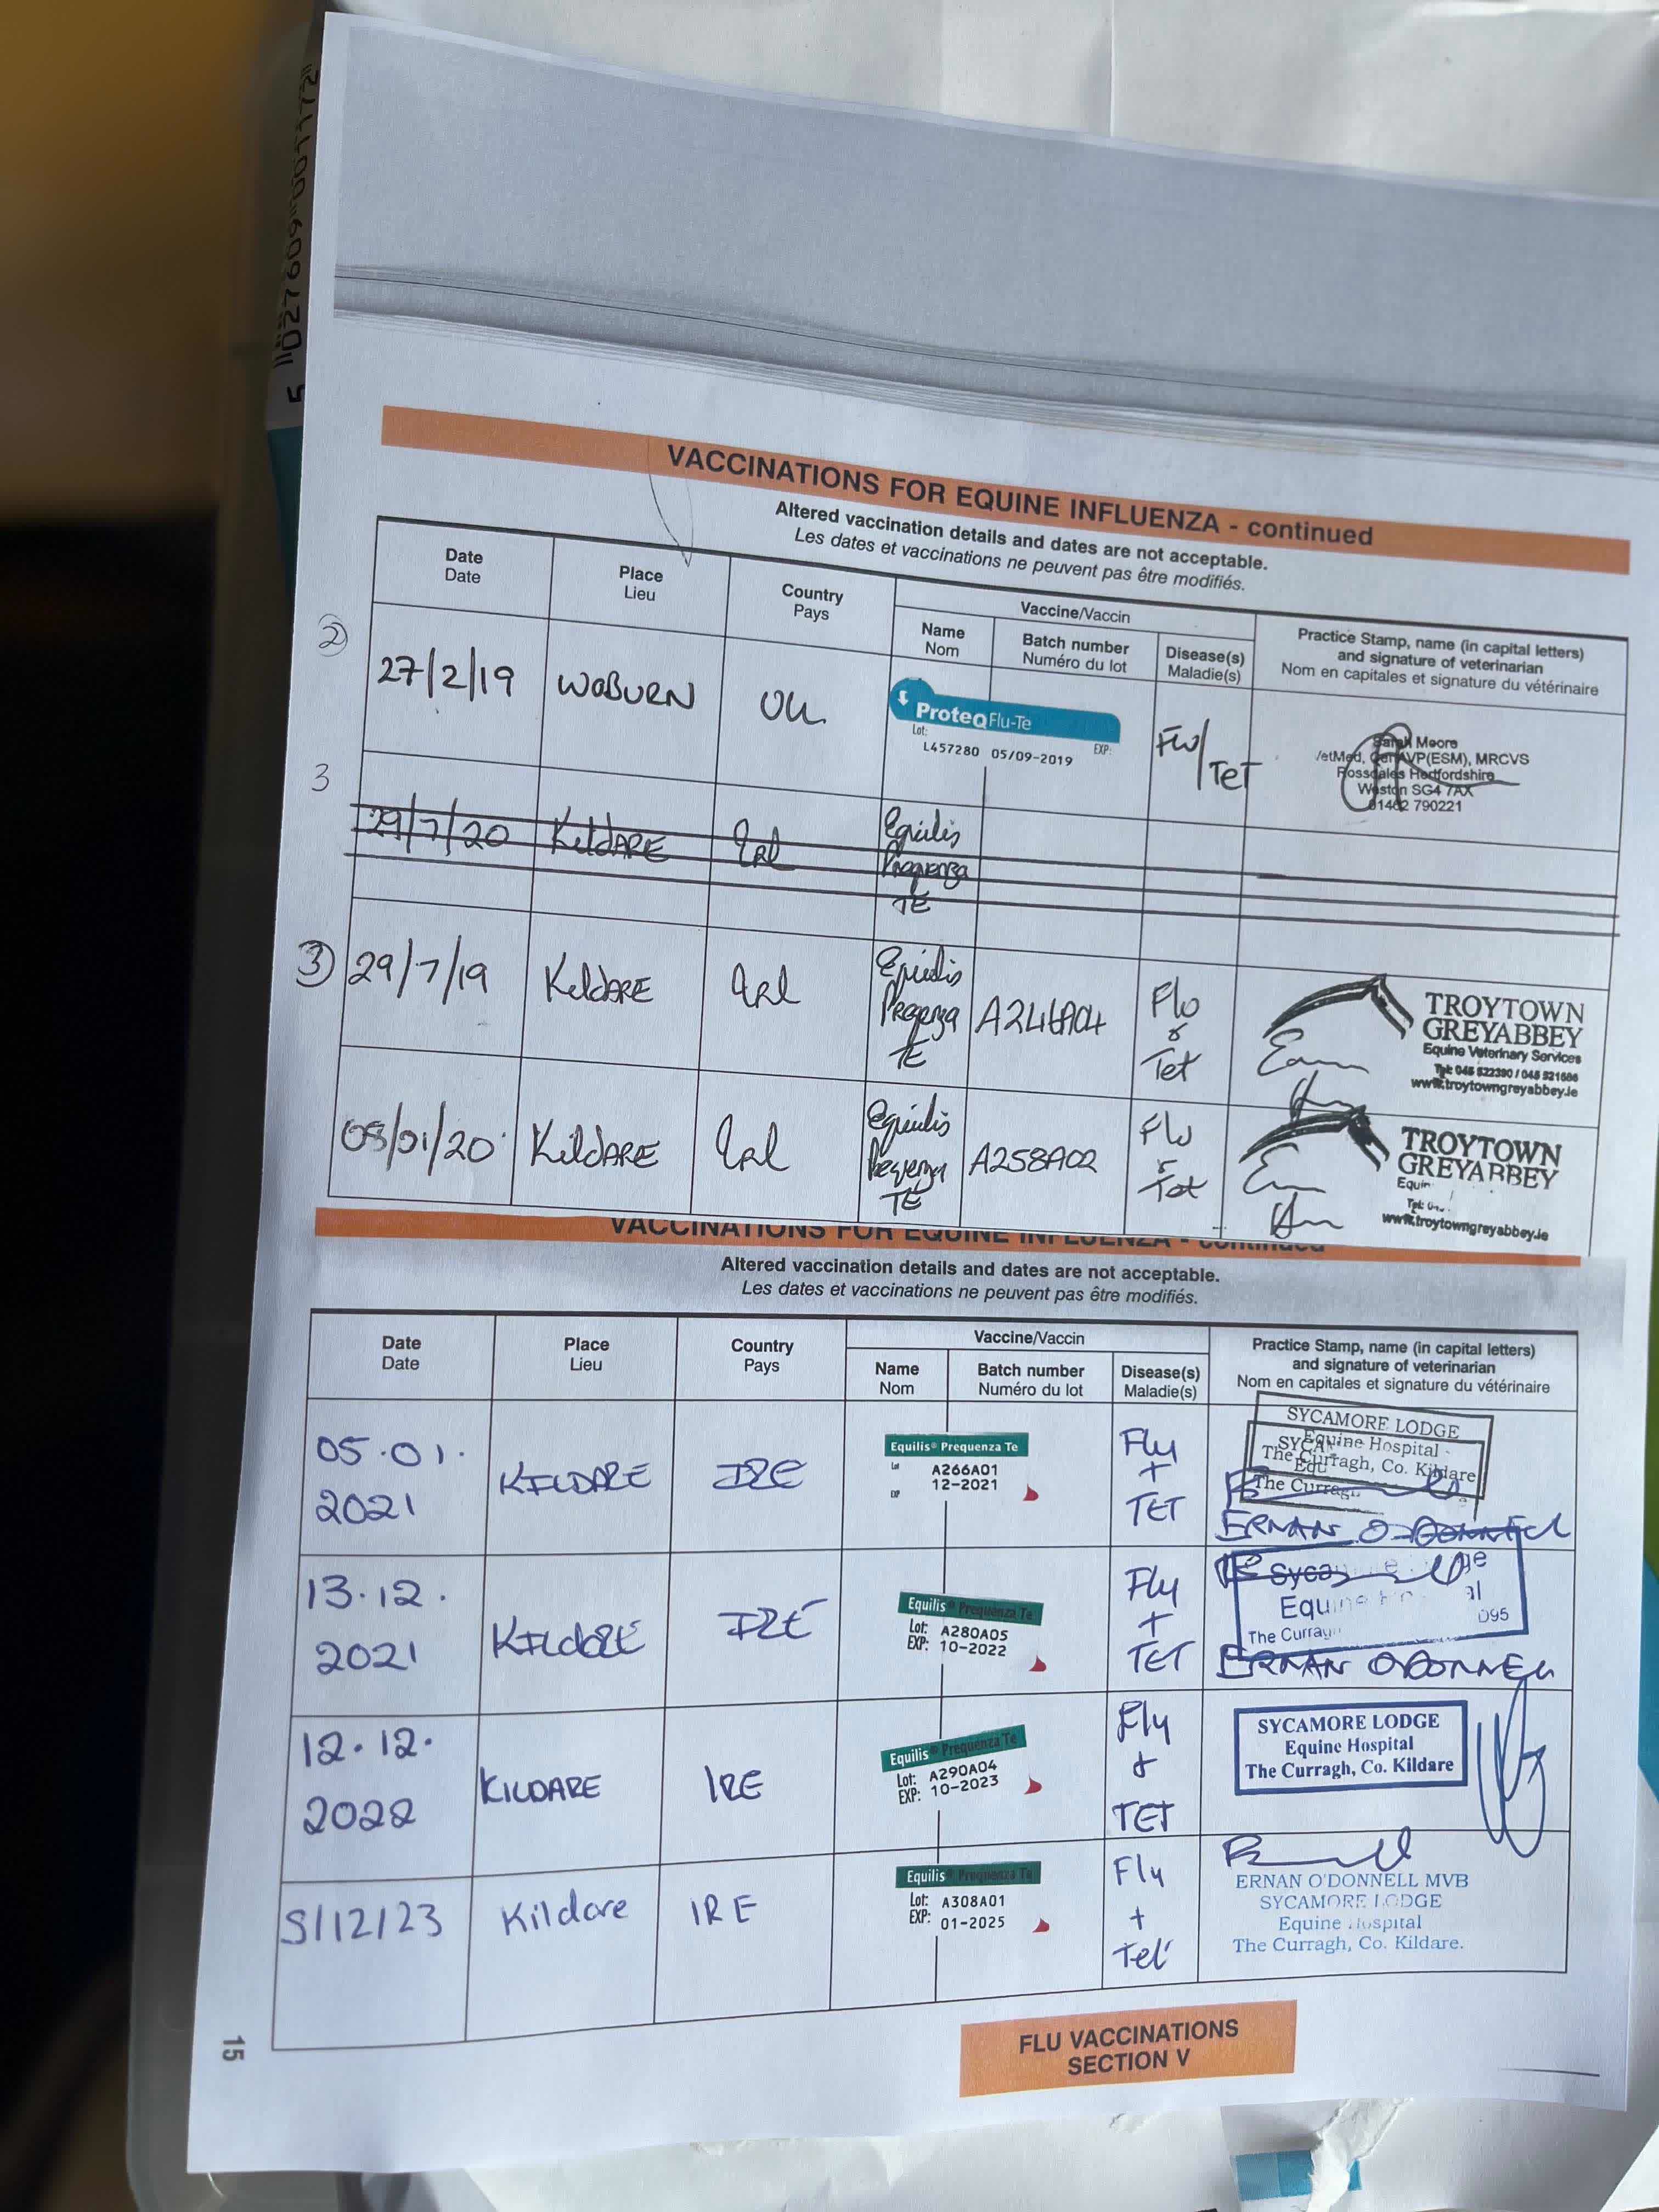 5 "D27609-001172"
VACCINATIONS FOR EQUINE INFLUENZA - continued
Altered vaccination details and dates are not acceptable.
Les dates et vaccinations ne peuvent pas être modifiés.
Date
Date
Place
Lieu
Country
Pays
Vaccine/Vaccin
Name
Nom
Batch number
Numéro du lot
Disease(s)
Maladie(s)
Practice Stamp, name (in capital letters)
and signature of veterinarian
Nom en capitales et signature du vétérinaire
②
27/2/19
WOBURN
UK
ProteqFlu-Te
Lot:
EXP:
L457280 05/09-2019
Flu/
TeT
Sarah Moore
VetMed, CertAVP(ESM), MRCVS
Rossdales Hertfordshire
Weston SG4 7AX
01462 790221
3
29/7/20
KildARE
IRl
Equilis
Prequenza
TE
③
29/7/19
KildARE
IRl
Equilis
Prequenza
TE
A246A04
Flu
&
Tet
TROYTOWN
GREYABBEY
Equine Veterinary Services
Tel: 045 522390 / 045 521686
www.troytowngreyabbey.ie
/01/20
KildARE
IRl
Equilis
Prequenza
TE
A258A02
Flu
&
Tet
TROYTOWN
GREYABBEY
Equin
Tel: 0
www.troytowngreyabbey.ie
VACCINATIONS FOR EQUINE INFLUENZA - continued
Altered vaccination details and dates are not acceptable.
Les dates et vaccinations ne peuvent pas être modifiés.
Date
Date
Place
Lieu
Country
Pays
Vaccine/Vaccin
Name
Nom
Batch number
Numéro du lot
Disease(s)
Maladie(s)
Practice Stamp, name (in capital letters)
and signature of veterinarian
Nom en capitales et signature du vétérinaire
05.01.
2021
KILDARE
IRE
Equilis® Prequenza Te
Lot A266A01
EXP 12-2021
Flu
+
TET
SYCAMORE LODGE
Equine Hospital
The Curragh, Co. Kildare
The Curragh
ERNAN O'DONNELL
13.12.
2021
KILDARE
IRE
Equilis® Prequenza Te
Lot: A280A05
EXP: 10-2022
Flu
+
TET
Equine
The Curragh
095
ERNAN O'DONNELL
12.12.
2022
KILDARE
IRE
Equilis® Prequenza Te
Lot: A290A04
EXP: 10-2023
Flu
&
TET
SYCAMORE LODGE
Equine Hospital
The Curragh, Co. Kildare
5/12/23
Kildare
IRE
Equilis® Prequenza Te
Lot: A308A01
EXP: 01-2025
Flu
+
Tet
ERNAN O'DONNELL MVB
SYCAMORE LODGE
Equine Hospital
The Curragh, Co. Kildare.
15
FLU VACCINATIONS
SECTION V